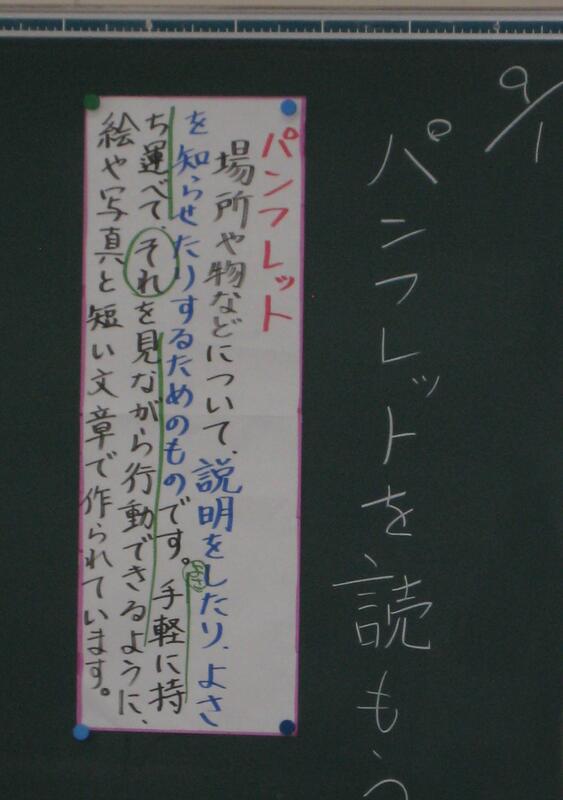 9/1
パンフレットを読もう
パンフレット
場所や物などについて、説明をしたり、よさ
を知らせたりするためのものです。手軽に持
ち運べて、それを見ながら行動できるように、
絵や写真と短い文章で作られています。